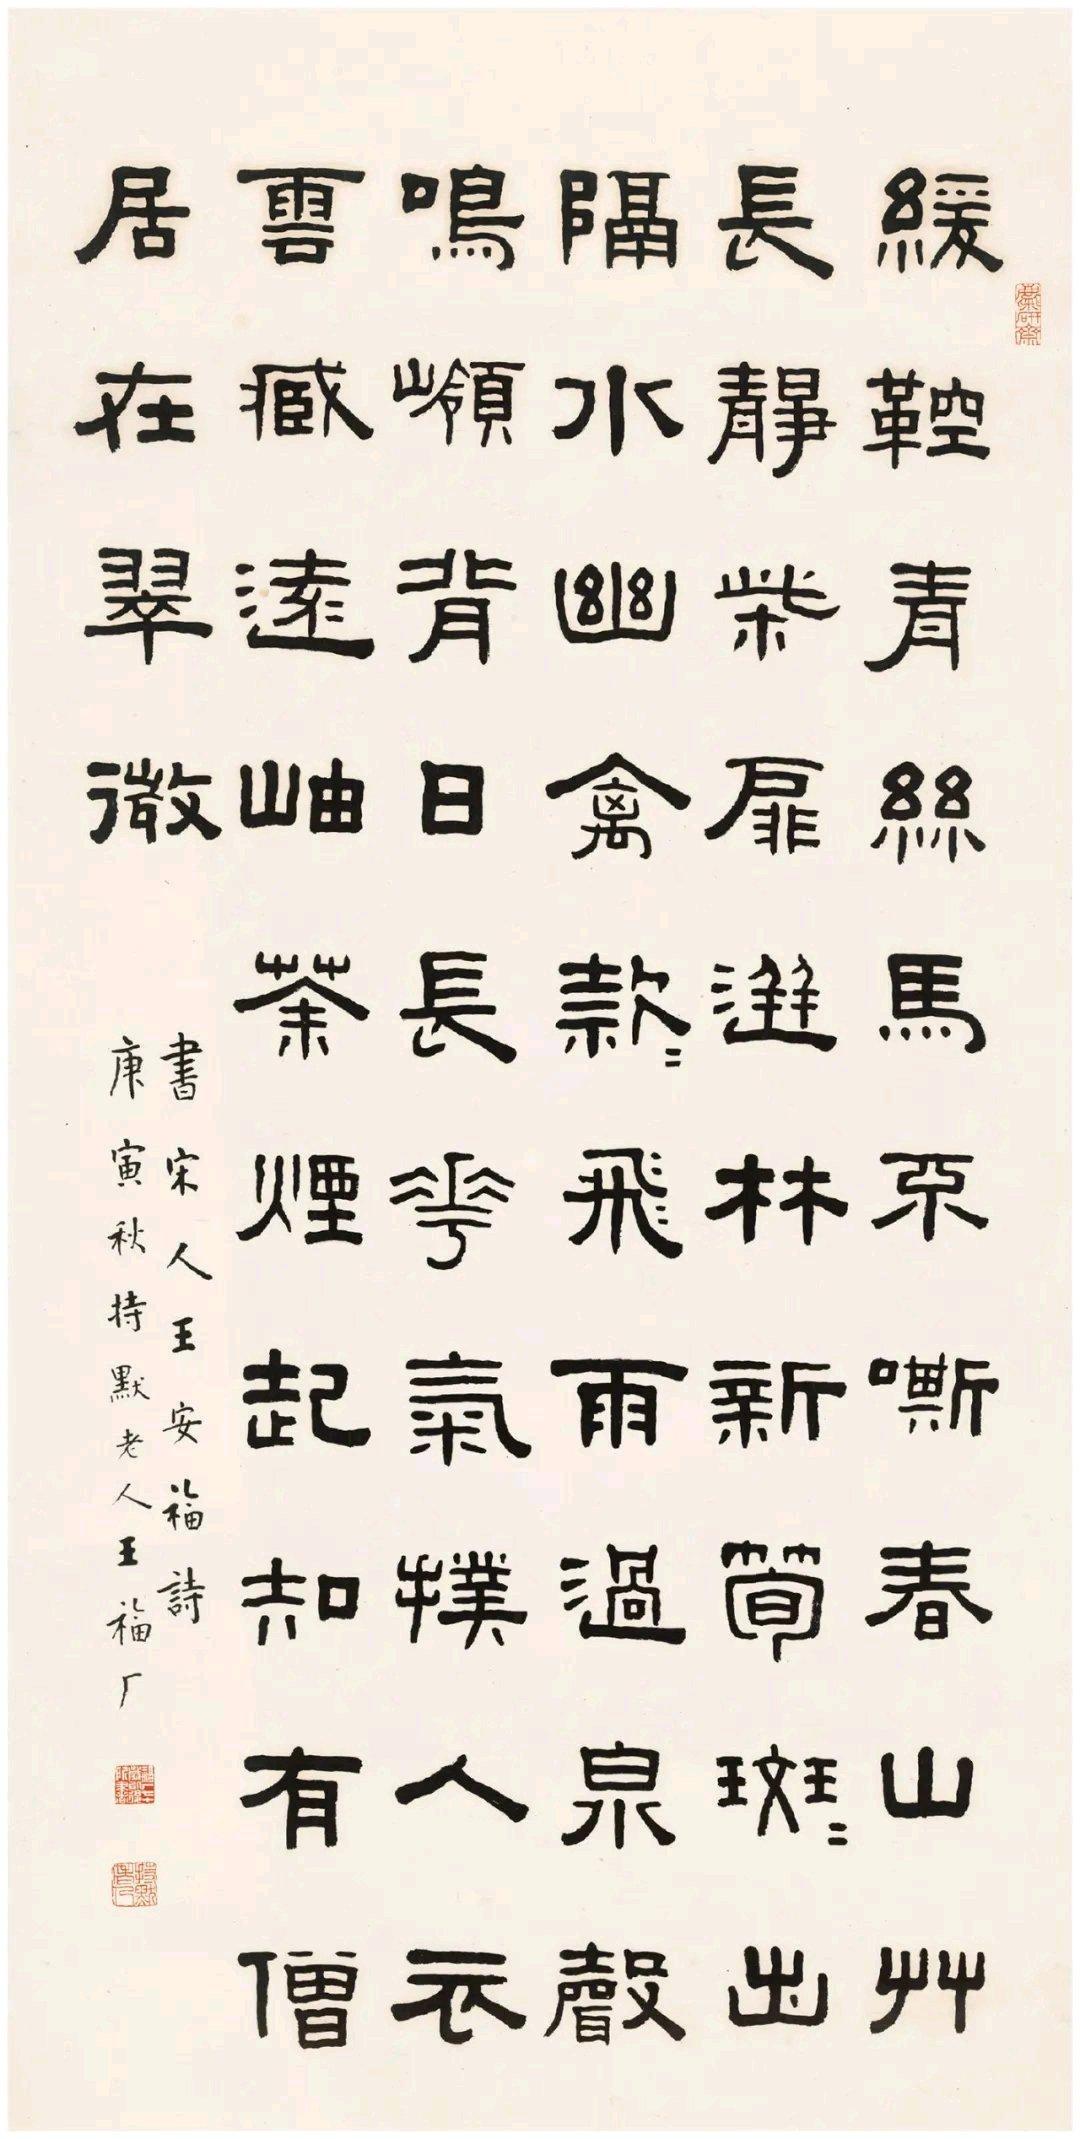 緩鞚青絲馬不嘶春山艸
長靜柴扉迸林新筍斑=出
隔水幽禽款=飛雨過泉聲
鳴嶺背日長花氣撲人衣
雲藏遠岫茶煙起知有僧
居在翠微
書宋人王安福詩
庚寅秋持默老人王福厂